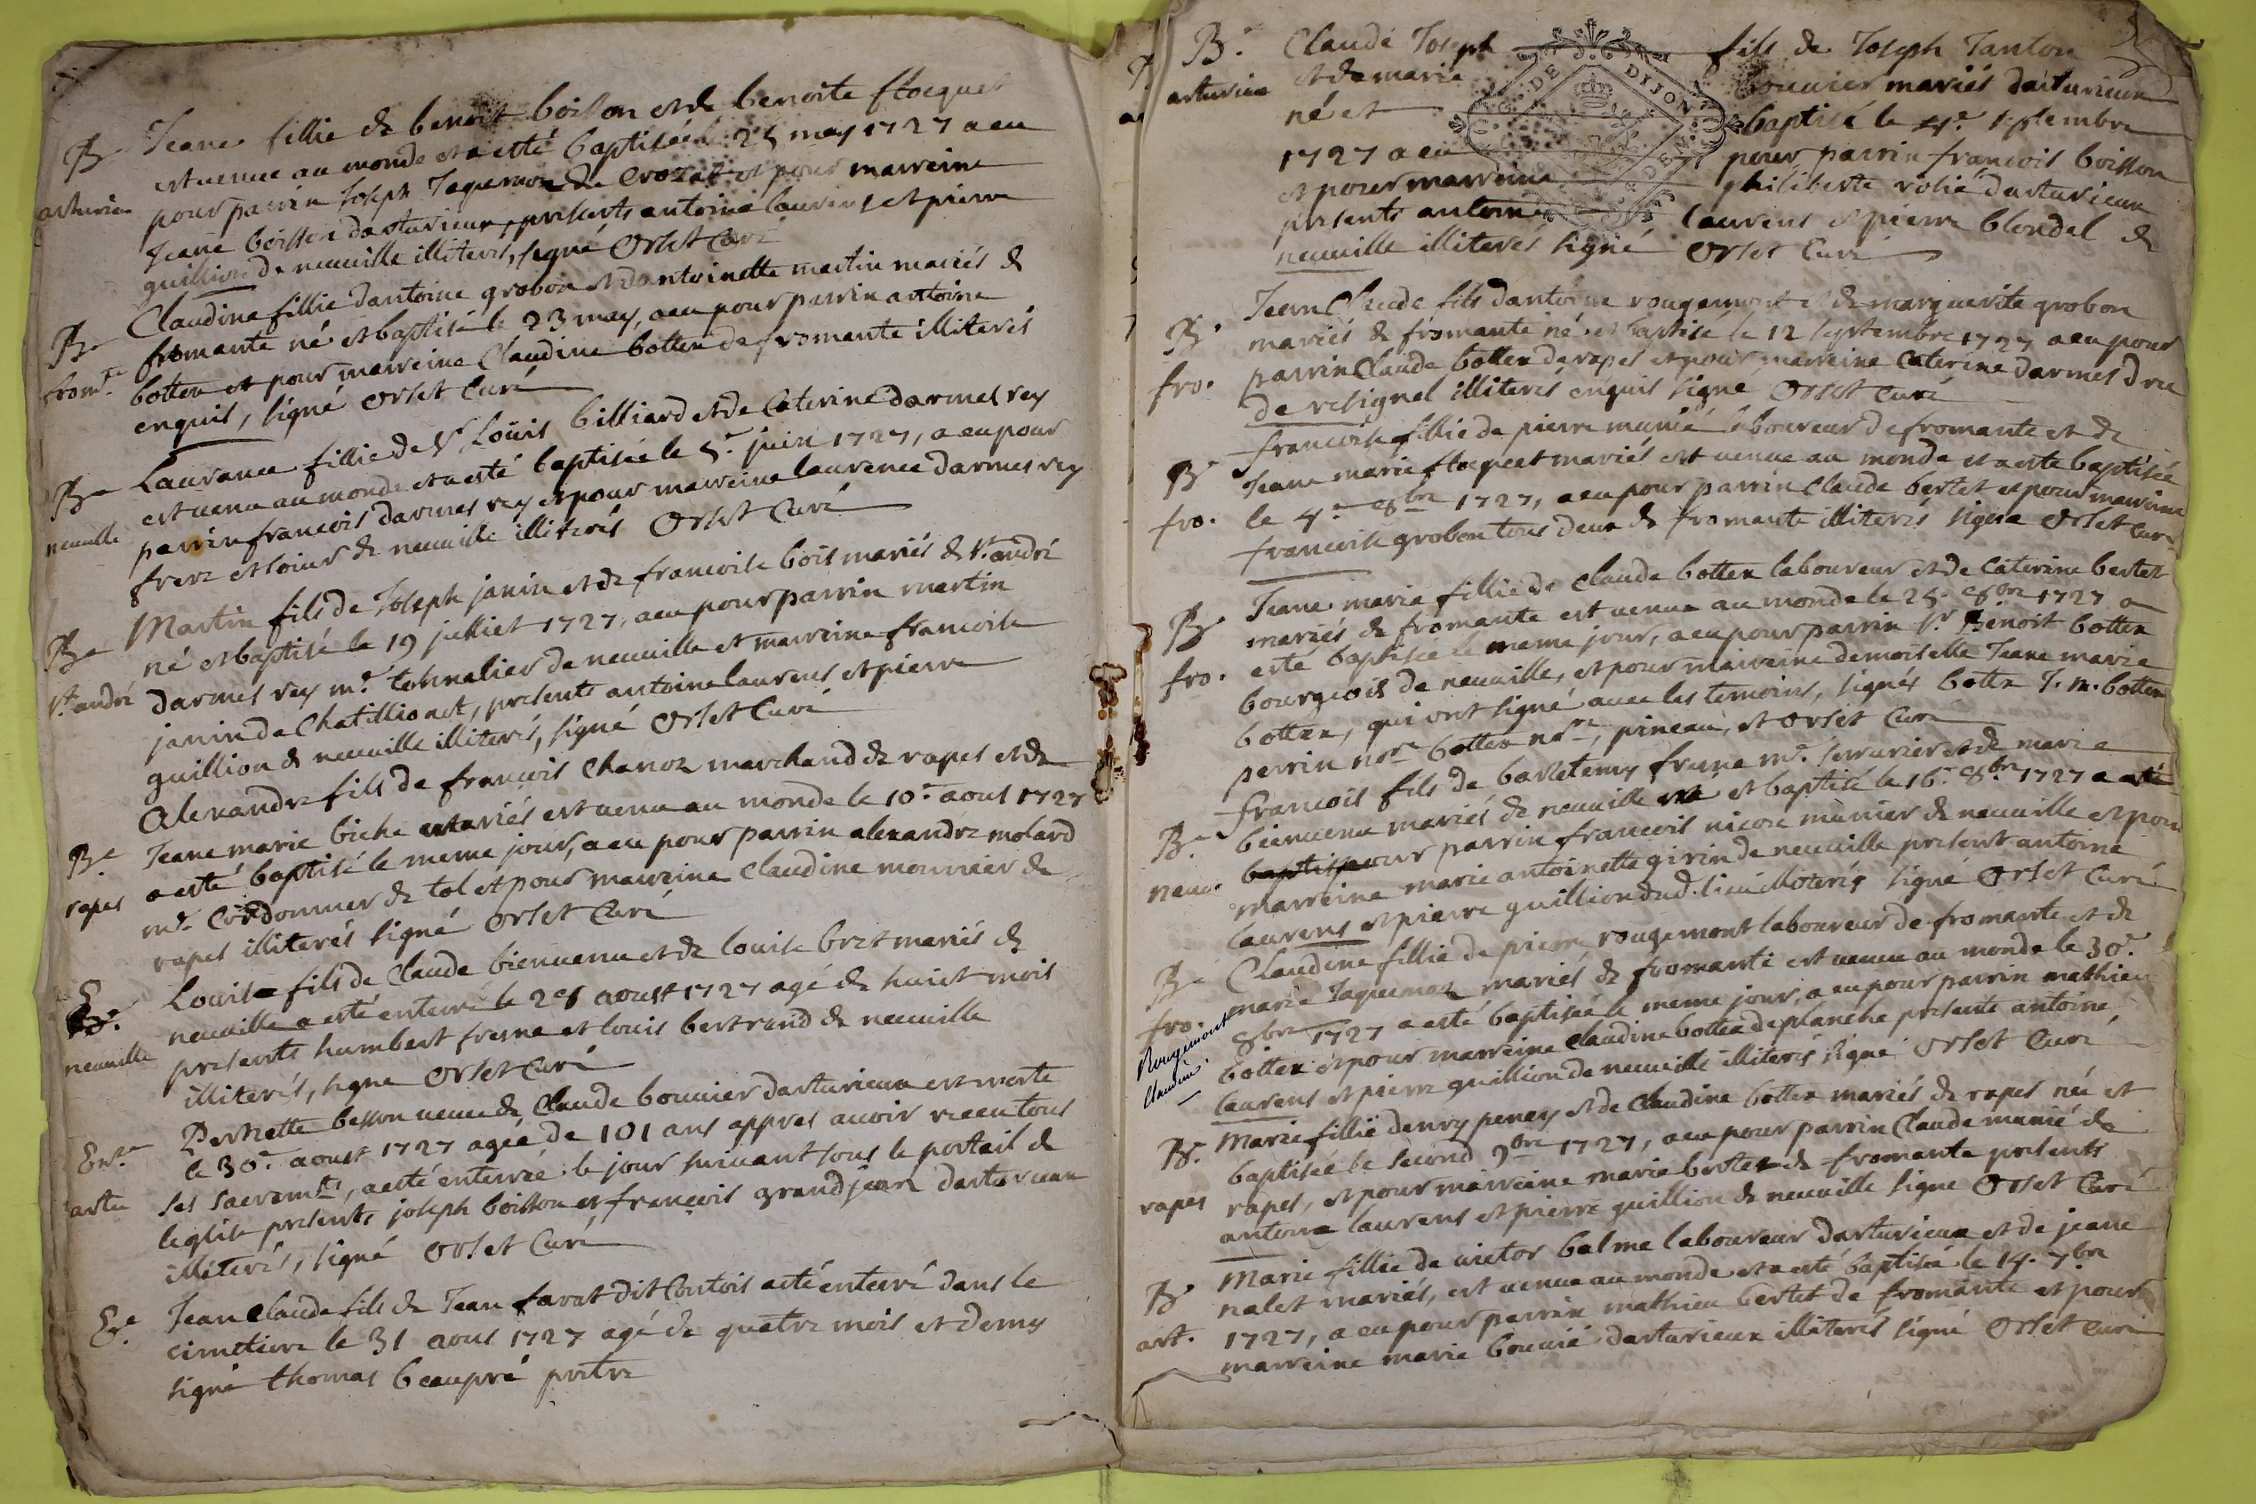 Jeane fillie de benoit boisson et de benoite flocquet
Be est venue au monde et a esté baptisée le 25 may 1727 a eu
arturieu pour parrin Joseph Jaquemoz de Crozat et pour marreine
Jeane boisson darturieux, presents antoine laurens et pierre
guillion de neuville illiterés, signé Orset Curé
Be Claudine fillie dantoine grobon et dantoinette martin mariés de
from.te fromante né et baptisé le 23 may, a eu pour parrin antoine
bottex et pour marreine Claudine bottex de fromante illiterés
enquis, signé Orset Curé
Be Laurance fillie de Sr Loüis billiard et de Caterine darmes rey
neuville est venu au monde et a esté baptisée le 5e juin 1727, a eu pour
parrin francois darmes rey et pour marreine laurence darmes rey
frere et soeur de neuville illiterés Orset Curé
Be Martin fils de Joseph janin et de francoise bois mariés de St andré
St andré né et baptisé le 19 julliet 1727, a eu pour parrin martin
darmes rey me tonnalier de neuville et marreine francoise
janin de Chatillionet, presents antoine laurens et pierre
guillion de neuville illiterés, signé Orset Curé
Be Alexandre fils de francois Chanoz marchand de rapes et de
rapes Jeane marie biche mariés est venu au monde le 10e aous 1727
a esté baptisé le meme jour, a eu pour parrin alexandre molard
me Cordonnier de tol et pour marreine Claudine monnier de
rapes illiterés signé Orset Curé
E Louise fils de Claude bienvenu et de louise bret mariés de
neuville neuville a esté enterré le 28 aoust 1727 agé de huict mois
presents humbert fresne et louis bertrand de neuville
illiterés, signe Orset Curé
Ent.e Pernette besson veuve de Claude bouvier darturieux est morte
artu le 30e aoust 1727 agée de 101 ans appres avoir receu tous
ses sacremts, a esté enterrée le jour suivant sous le portail de
leglise presents joseph boisson et françois grandjean darturieux
illiterés, signé Orset Curé
Ee Jean Claude fils de Jean favat dit Contois a eté enterré dans le
cimetiere le 31 aous 1727 agé de quatre mois et demy
signé thomas beaupré pretre
Be Claude Joseph fils de Joseph Janton
arturieu et de marie bouvier mariés darturieux
né et baptisé le 4e septembre
1727 a eu pour parrin francois boisson
et pour marreine philiberte rolié darturieux
presents antoine laurens et pierre blondel de
neuville illiterés signé Orset Curé
G. DE DIJON
Jean Claude fils dantoine rougemont et de marguerite grobon
Be mariés de fromante né et baptisé le 12 septembre 1727 a eu pour
fro. parrin Claude bottex de rapes et pour marreine Caterine darmes dru
de resignel illiterés enquis signé Orset Curé
francoise fillie de pierre munié laboureur de fromante et de
Be Jeane marie flocquet mariés est venue au monde et a esté baptisée
fro. le 4e 8bre 1727, a eu pour parrin Claude bertet et pour marreine
francoise grobon tous deux de fromante illiterés signé Orset Curé
Be Jeane marie fillie de Claude bottex laboureur et de Caterine bertet
mariés de fromante est venue au monde le 25e 8bre 1727 a
fro. esté baptisée le meme jour, a eu pour parrin Sr Benoit bottex
bourgeois de neuville, et pour marreine demoiselle Jeane marie
bottex, qui ont signé avec les temoins, signés bottex J. m. bottex
perrin nre bottex nre, pineau, et Orset Curé
francois fils de bartelemy fresne me serrurier et de marie
Be bienvenu mariés de neuville né et baptisé le 16e 8bre 1727 a eté
neuv. baptisé pour parrin francois nicoz munier de neuville et pour
marreine marie antoinette girin de neuville present antoine
laurens et pierre guillion dud. lieu illiterés signé Orset Curé
Be Claudine fillie de pierre rougemont laboureur de fromante et de
fro. marie Jaquemoz mariés de fromante est venue au monde le 30e
8bre 1727 a esté baptisée le meme jour, a eu pour parrin mathieu
Rougemont Claudine. bottex et pour marreine Claudine bottex de planche presents antoine
laurens et pierre guillion de neuville illiterés signé Orset Curé
Be Marie fillie denry peney et de Claudine bottex mariés de rapes née et
baptisée le second 9bre 1727, a eu pour parrin Claude munié de
rapes rapes, et pour marreine marie bertet de fromante presents
antoine laurens et pierre guillion de neuville signe Orset Curé
Marie fillie de victor balme laboureur darturieux et de jeane
Be nalet mariés, est venue au monde et a esté baptisée le 14. 9bre
art. 1727, a eu pour parrin mathieu bertet de fromante et pour
marreine marie bouvié darturieux illiterés signé Orset Curé